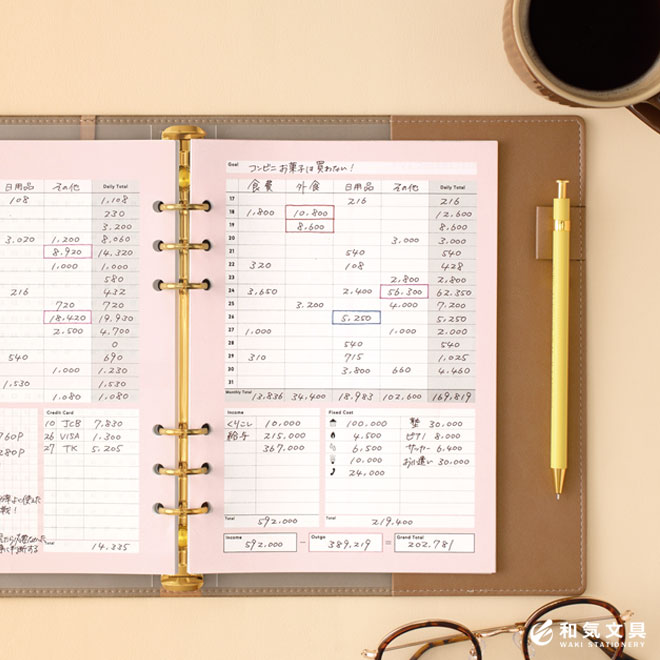 日用品 その他 Daily Total
108 1,108
230
3.200
3.020 1.200 8.060
8.920 14,320
1.000 1.000
580
216 432
720 720
18.420 19,930
2.500 4.700
0
540 690
1.000 1.230
1.530 1.530
1.080 1.080
Credit Card
10 JCB 7,830
26 VISA 1,300
27 TK 5,205
14,335
760P
280P
Goal コンビニお菓子は買わない!
食費 外食 日用品 その他 Daily Total
17 216 216
18 1,800 10.800 12,600
19 8,600 8,600
20 3,000 3,000
21 540 540
22 320 108 428
23 2,800 2,800
24 3,650 2,400 56,300 62,350
25 3,200 4,000 7,200
26 5,250 5,250
27 1,000 1,000 2,000
28 540 540
29 310 715 1,025
30 3,800 660 4,460
31
Monthly Total 13,836 34,400 18,983 102,600 169,819
Income
くりこし 10,000
給与 215,000
367,000
Total 592,000
Fixed Cost
100,000 塾 30,000
4,500 ピアノ 8,000
6,500 サッカー 6,400
10,000 お小遣い 30,000
24,000
Total 219,400
Income 592,000 − Outgo 389,219 = Grand Total 202,781
和気文具
WAKI STATIONERY